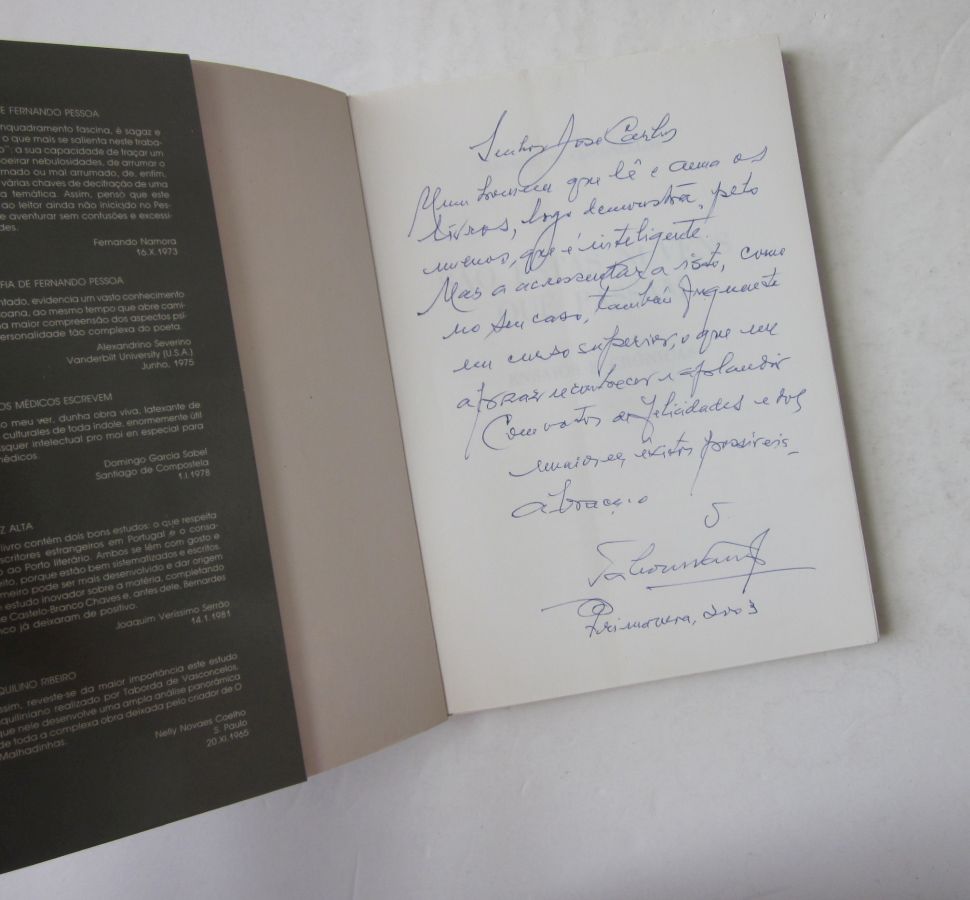 E FERNANDO PESSOA
nquadramento fascina, é sagaz e
o que mais se salienta neste traba-
o": a sua capacidade de traçar um
oeirar nebulosidades, de arrumar o
mado ou mal arrumado, de, enfim,
várias chaves de decifração de uma
a temática. Assim, penso que este
ao leitor ainda não iniciado no Pes-
e aventurar sem confusões e excessi-
des.
Fernando Namora
16.X.1973
FIA DE FERNANDO PESSOA
ntado, evidencia um vasto conhecimento
oana, ao mesmo tempo que abre cami-
a maior compreensão dos aspectos psi-
ersonalidade tão complexa do poeta.
Alexandrino Severino
Vanderbilt University (U.S.A.)
Junho, 1975
OS MÉDICOS ESCREVEM
o meu ver, dunha obra viva, latexante de
culturales de toda indole, enormemente útil
squer intelectual pro mai en especial para
médicos.
Domingo Garcia Sabel
Santiago de Compostela
1.I.1978
Z ALTA
livro contém dois bons estudos: o que respeita
scritores estrangeiros em Portugal e o consa-
o ao Porto literário. Ambos se lêm com gosto e
rito, porque estão bem sistematizados e escritos.
meiro pode ser mais desenvolvido e dar origem
estudo inovador sobre a matéria, completando
e Castelo-Branco Chaves e, antes dele, Bernardes
nco já deixaram de positivo.
Joaquim Veríssimo Serrão
14.1.1981
QUILINO RIBEIRO
ssim, reveste-se da maior importância este estudo
quiliniano realizado por Taborda de Vasconcelos,
que nele desenvolve uma ampla análise panorâmica
de toda a complexa obra deixada pelo criador de O
Malhadinhas.
Nelly Novaes Coelho
S. Paulo
20.XI.1965
Senhor José Carlos
Um homem que lê e ama os
livros, logo demonstra, pelo
menos, que é inteligente.
Mas a acrescentar a isto, como
no seu caso, também frequenta
um curso superior, o que me
apraz reconhecer e aplaudir
Com votos de felicidades e dos
maiores êxitos possíveis,
abraça-o
Primavera, 2003